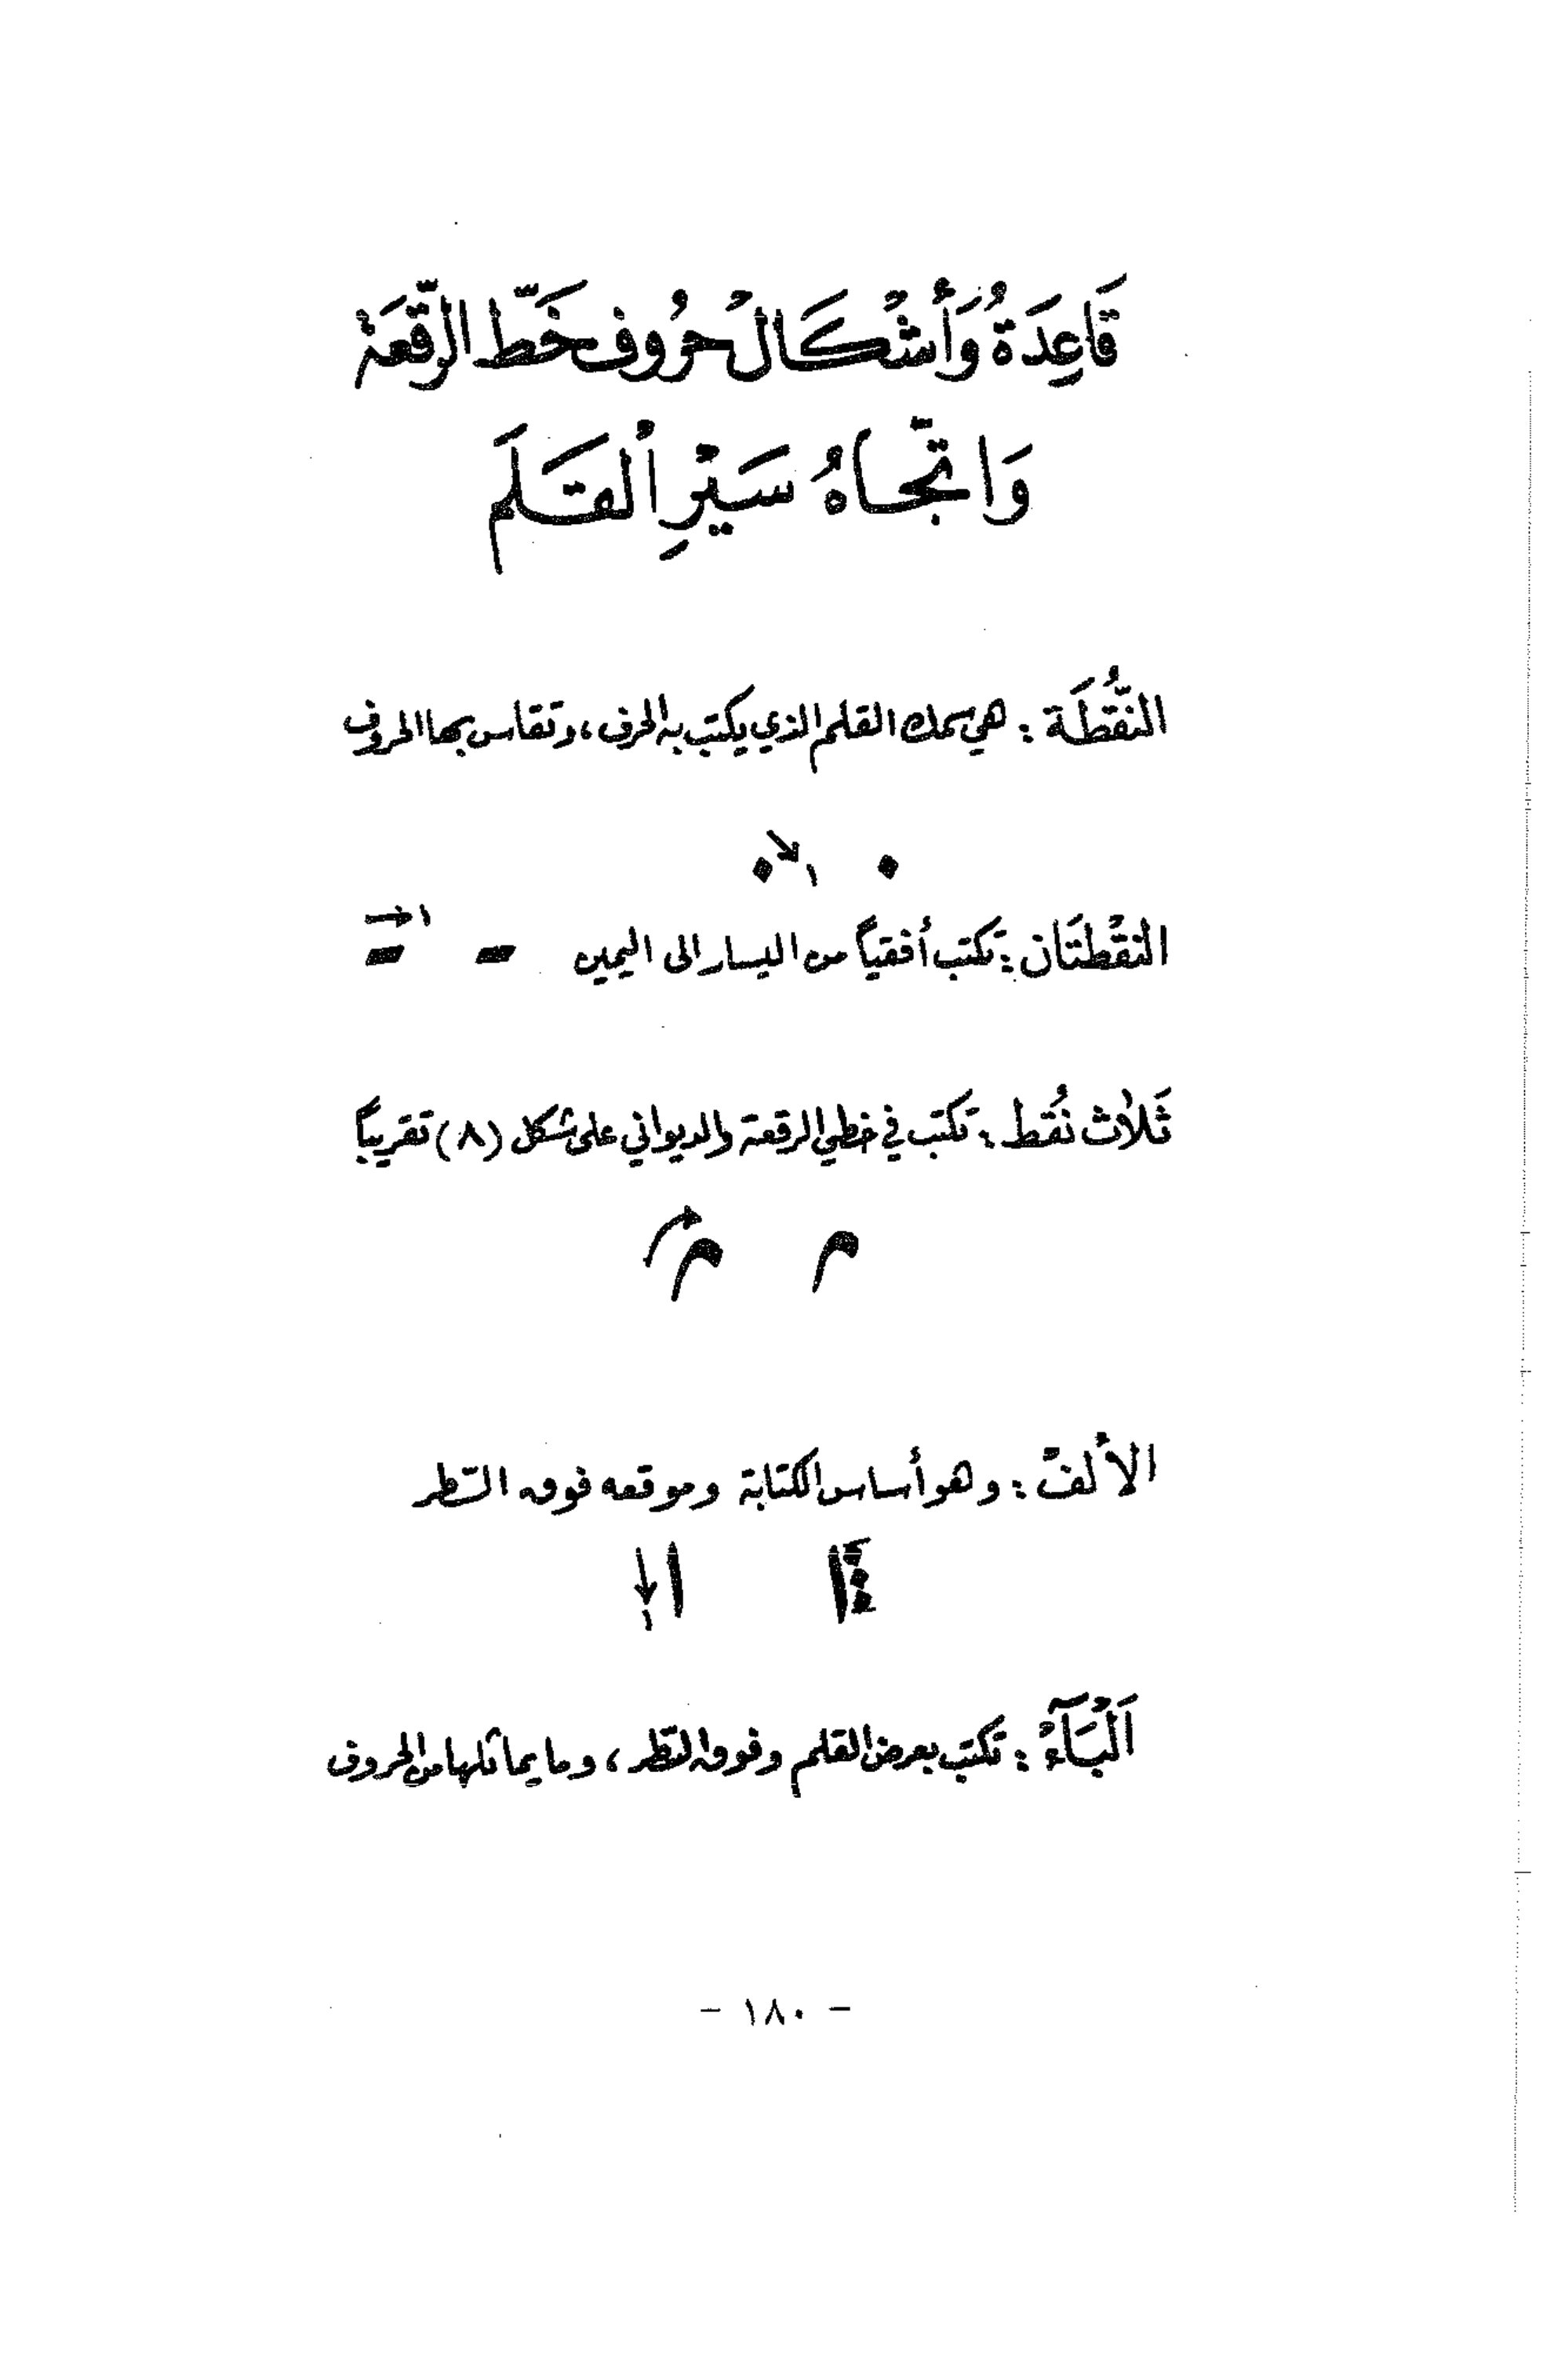 قَاعِدَةُ وَأَشْكَالْ حُرُوف خَطّ الرّقعَة
وَاتّجاهُ سَيْرِ اُلقَلَم
النُّقْطَة : هي سمك القلم الذي يكتب به الحرف ، وتقاس بها الحروف
١
النقْطتَان : تكتب أفقياً من اليسار الى اليمين
١
ثَلاث نُقَط : تكتب في خطي الرقعة والديواني على شكل (٨) تقريباً
الألفْ : وهو أساس الكتابة وموقعه فوق السّطر
١
اَلْبَآءْ : تكتب بعرض القلم وفوق السّطر ، وما يماثلها من الحروف
- ١٨٠ -